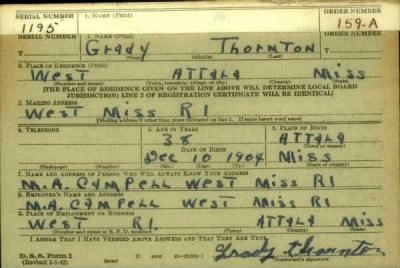 SERIAL NUMBER 1. NAME (Print) ORDER NUMBER
1195 Grady Thornton 159-A
(First) (Middle) (Last)
2. PLACE OF RESIDENCE (Print)
West Attala Miss
(Number and street) (Town, township, village, or city) (County) (State)
[THE PLACE OF RESIDENCE GIVEN ON THE LINE ABOVE WILL DETERMINE LOCAL BOARD
JURISDICTION; LINE 2 OF REGISTRATION CERTIFICATE WILL BE IDENTICAL]
3. MAILING ADDRESS
West Miss R1
[Mailing address if other than place indicated on line 2. If same insert word same]
4. TELEPHONE 5. AGE IN YEARS 6. PLACE OF BIRTH
38 Attala
(Town or county)
DATE OF BIRTH
Dec 10 1904 Miss
(Mo.) (Day) (Yr.) (State or country)
7. NAME AND ADDRESS OF PERSON WHO WILL ALWAYS KNOW YOUR ADDRESS
M.A. Campell West Miss R1
8. EMPLOYER'S NAME AND ADDRESS
M.A. Campell West Miss R1
9. PLACE OF EMPLOYMENT OR BUSINESS
West R1. Attala Miss
(Number and street or R. F. D. number) (Town) (County) (State)
I AFFIRM THAT I HAVE VERIFIED ABOVE ANSWERS AND THAT THEY ARE TRUE.
D. S. S. Form 1 GPO Grady Thornton
(Revised 1-1-42) (Registrant's signature)